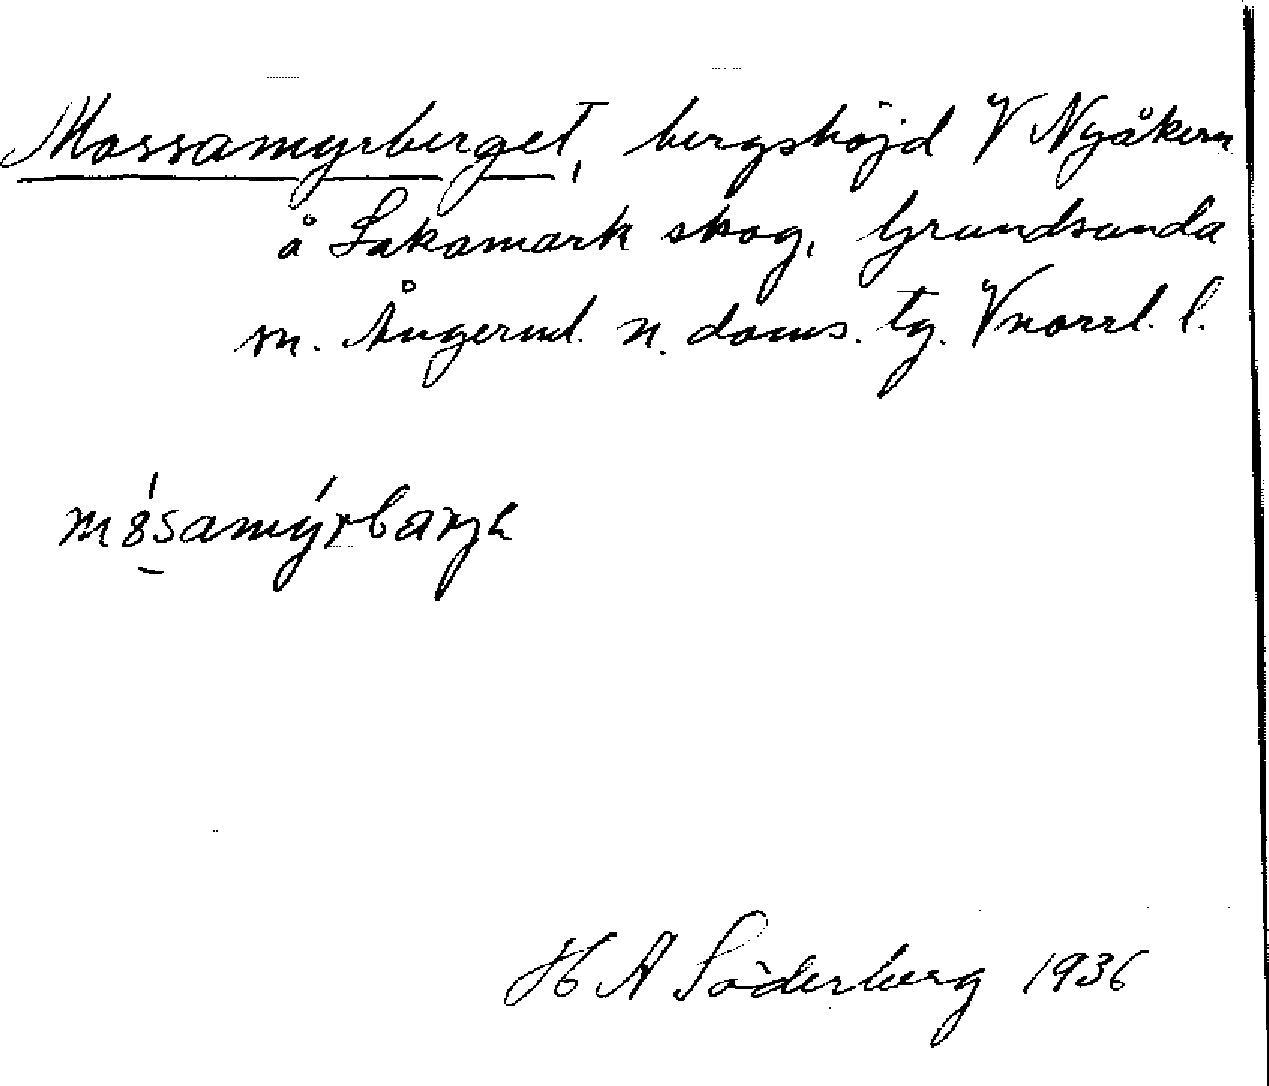 Mossamyrberget, bergshöjd V Nyåkern
å Lakamark skog, Grundsunda
sn. Ångerml. n. doms. tg. Vnorrl. l.
H A Söderberg 1936